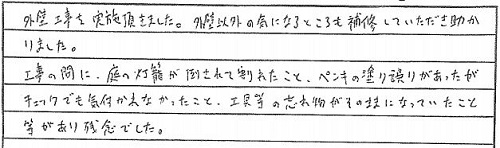 外壁工事を実施頂きました。外壁以外の気になるところも補修していただき助か
りました。
工事の間に、庭の灯籠が倒されて割れたこと、ペンキの塗り誤りがあったが
チェックでも気付かれなかったこと、工具等の忘れ物がそのままになっていたこと
等があり残念でした。